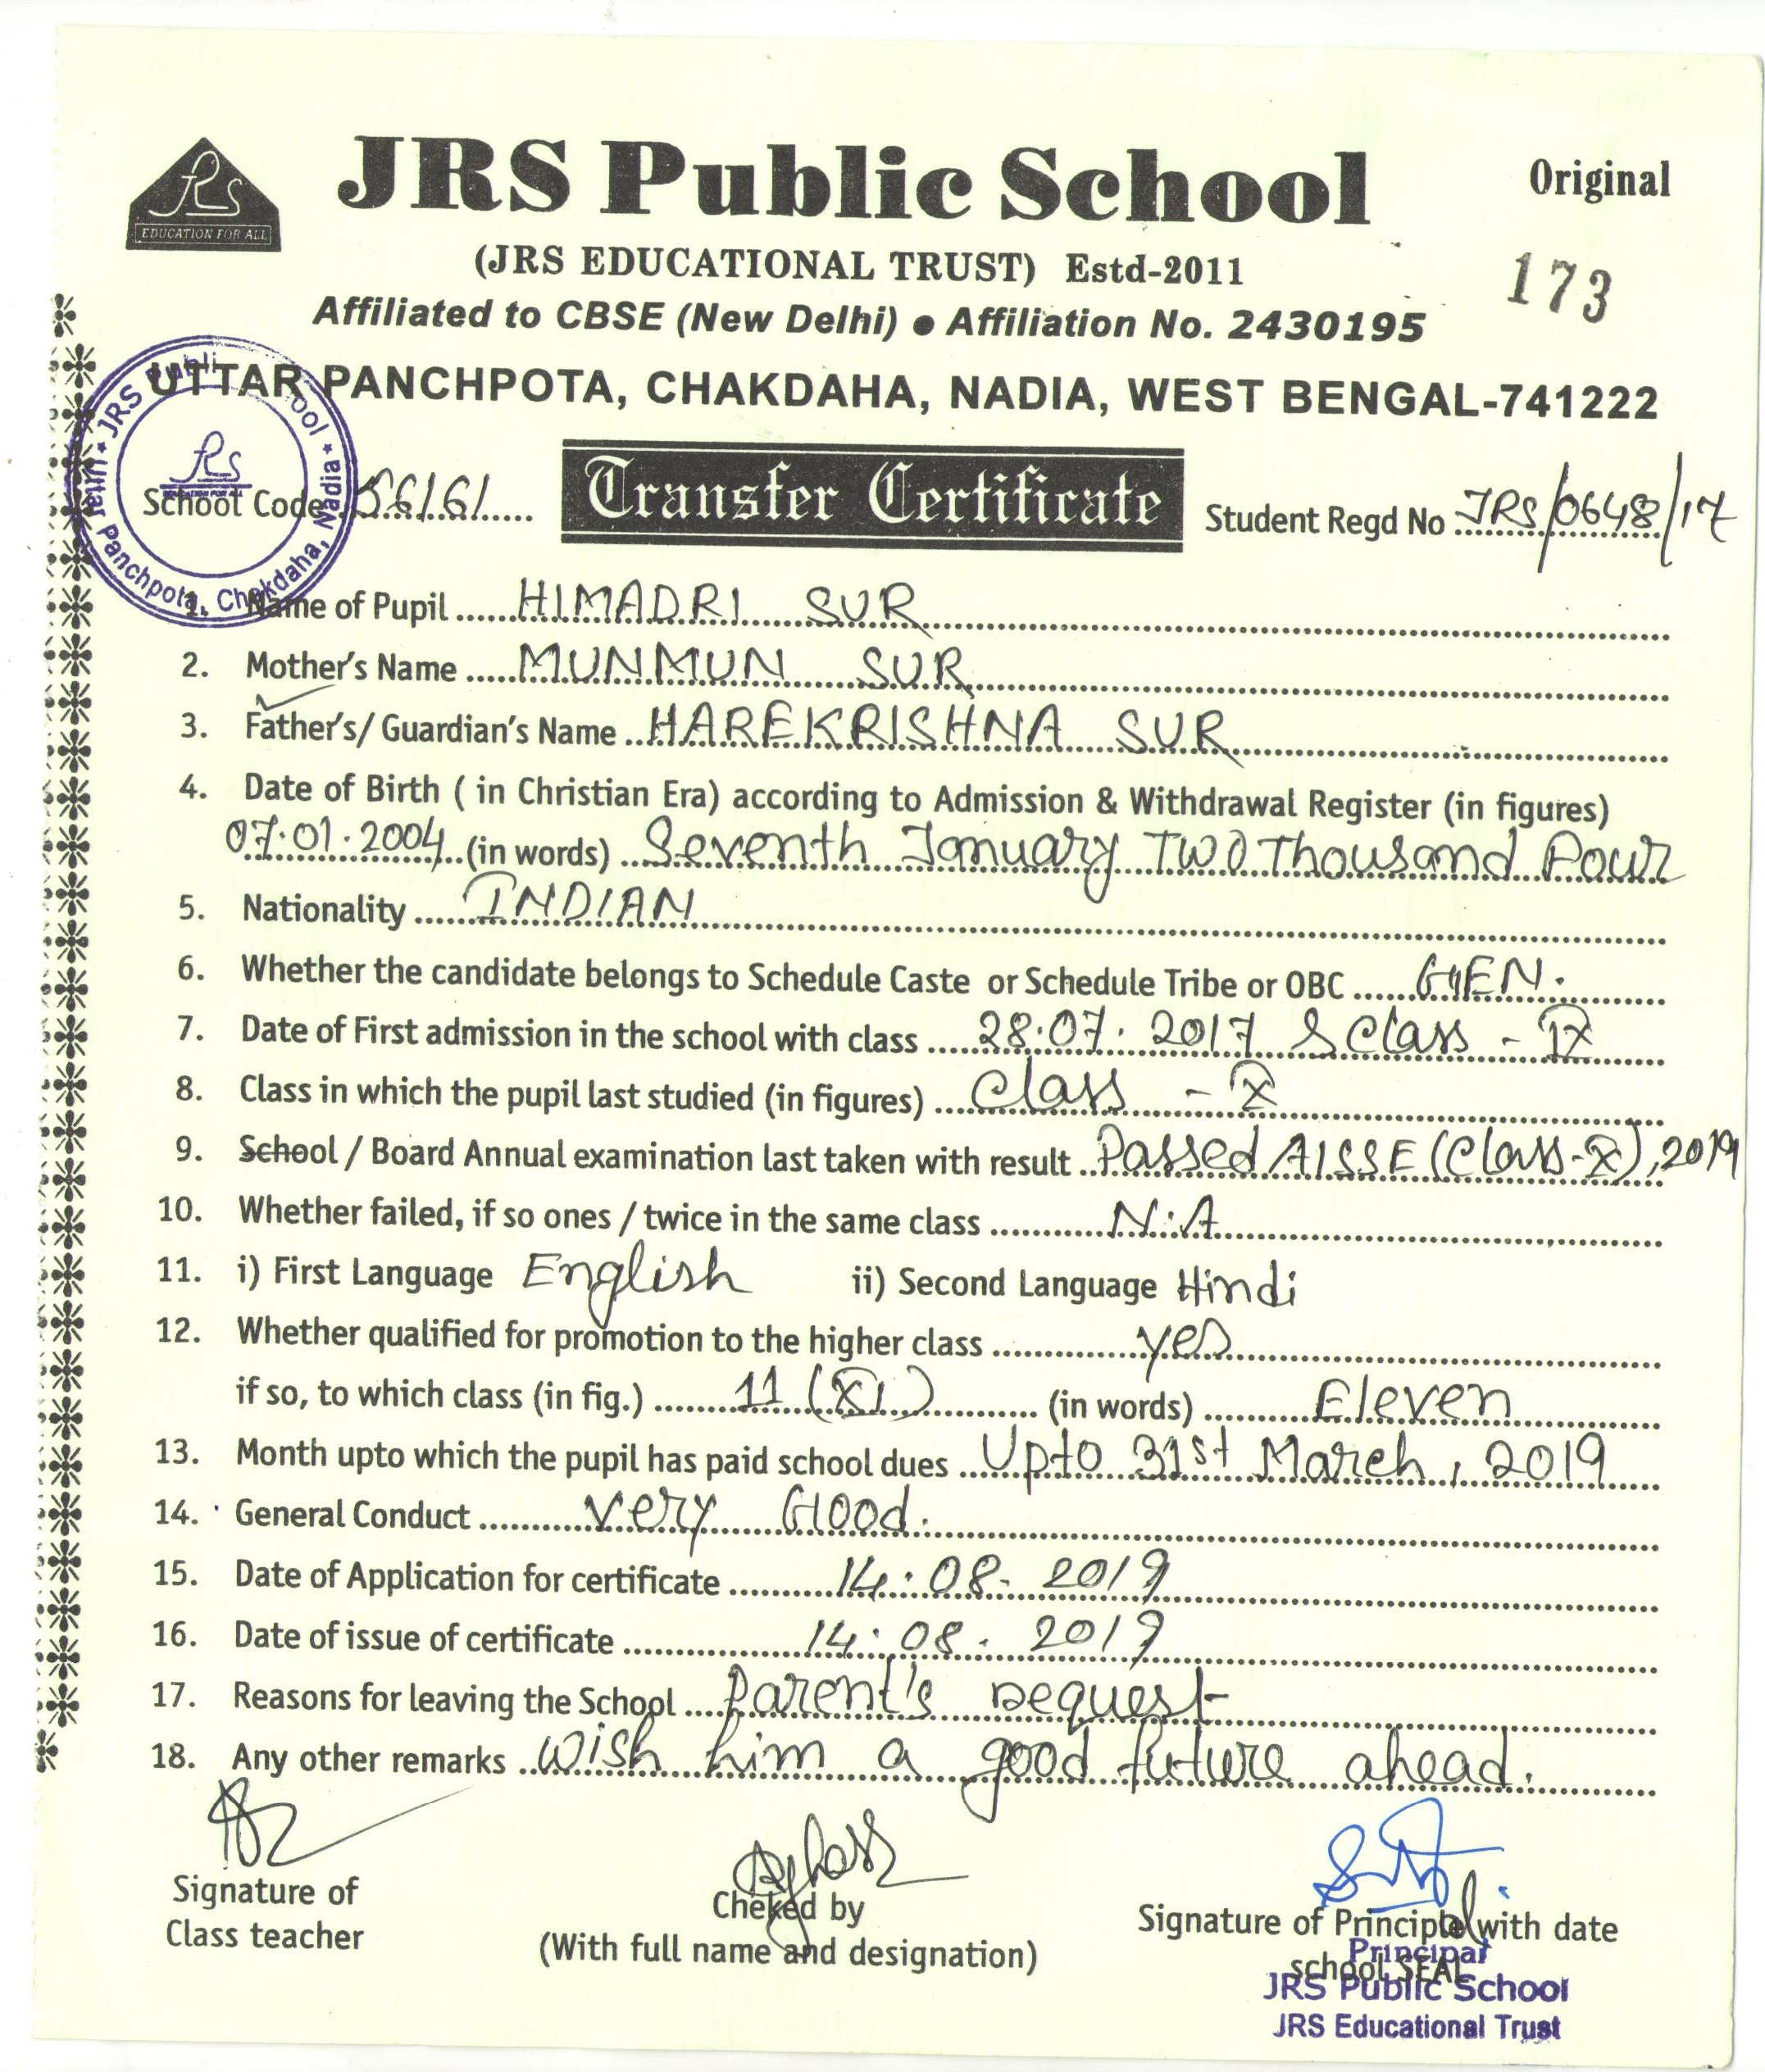 JRS
EDUCATION FOR ALL
JRS Public School
Original
(JRS EDUCATIONAL TRUST) Estd-2011
173
Affiliated to CBSE (New Delhi) ● Affiliation No. 2430195
UTTAR PANCHPOTA, CHAKDAHA, NADIA, WEST BENGAL-741222
JRS Public School * Uttar Panchpota, Chakdaha, Nadia *
School Code 56161
Transfer Certificate
Student Regd No JRS/0648/17
1. Name of Pupil HIMADRI SUR
2. Mother's Name MUNMUN SUR
3. Father's/ Guardian's Name HAREKRISHNA SUR
4. Date of Birth ( in Christian Era) according to Admission & Withdrawal Register (in figures)
07.01.2004 (in words) Seventh January Two Thousand Four
5. Nationality INDIAN
6. Whether the candidate belongs to Schedule Caste or Schedule Tribe or OBC GEN.
7. Date of First admission in the school with class 28.07.2017 & Class - IX
8. Class in which the pupil last studied (in figures) Class - X
9. School / Board Annual examination last taken with result Passed AISSE (Class-X), 2019
10. Whether failed, if so ones / twice in the same class N.A
11. i) First Language English ii) Second Language Hindi
12. Whether qualified for promotion to the higher class yes
if so, to which class (in fig.) 11 (XI) (in words) Eleven
13. Month upto which the pupil has paid school dues Upto 31st March, 2019
14. General Conduct Very Good.
15. Date of Application for certificate 14.08.2019
16. Date of issue of certificate 14.08.2019
17. Reasons for leaving the School Parent's request
18. Any other remarks Wish him a good future ahead.
Signature of
Class teacher
Cheked by
(With full name and designation)
Signature of Principle with date
school SEAL
Principal
JRS Public School
JRS Educational Trust